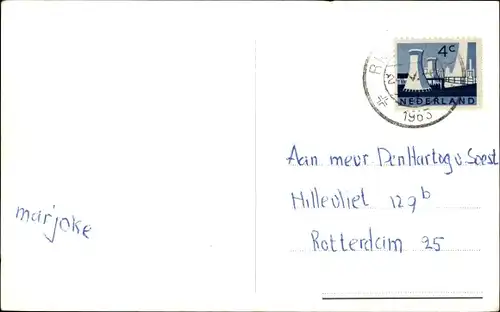 4c
NEDERLAND
1963
Aan mevr Den Hartog v Soest
Hillevliet 129b
Rotterdam 25
marjoke